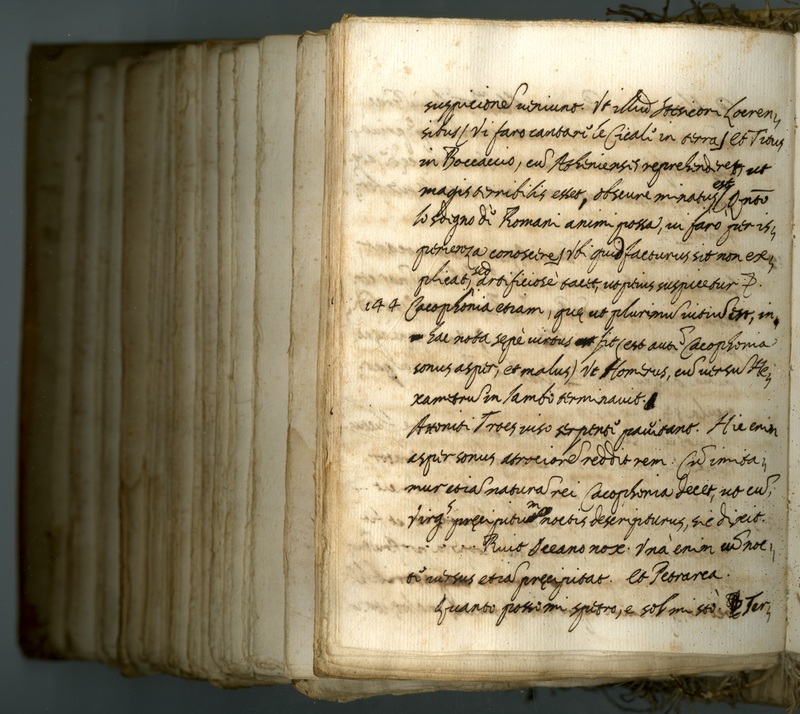 suspicione ueniunt. Vt illud Stesicori Locren,
sibus / Vi faro cantar le Cicale in terra / et Titus
in Boccaccio, cū Atheniensis reprehenderet, ut
magis terribilis esset, obscure minatus est / Qnto
lo sdegno di Romani animi possa, ui farò per is,
perienza conoscere / Vbi quid facturus sit non ex,
plicat, sed artificiosè tacet, ut peius suspicetur
144 Cacophonia etiam, quę ut plurimū uitiū est, in,
hac nota sępè uirtus fit (est autē Cacophonia
sonus asper, et malus) Vt Homerus, cū uersū He,
xametrū in Iambo terminauit.
Attoniti Troes uiso serpente pauitant. Hic enim
asper sonus atrociorē reddit rem. Cū imita,
mur etiā naturā rei Cacophonia decet, ut cū,
Virgs pręcipitiū noctis descripturus, sic dixit.
Ruit Oceano nox. Vnà enim cū noc,
te uersus etiā pręcipitat. Et Petrarca.
Quanto posso mi spetro, e sol mi stò. Ter,